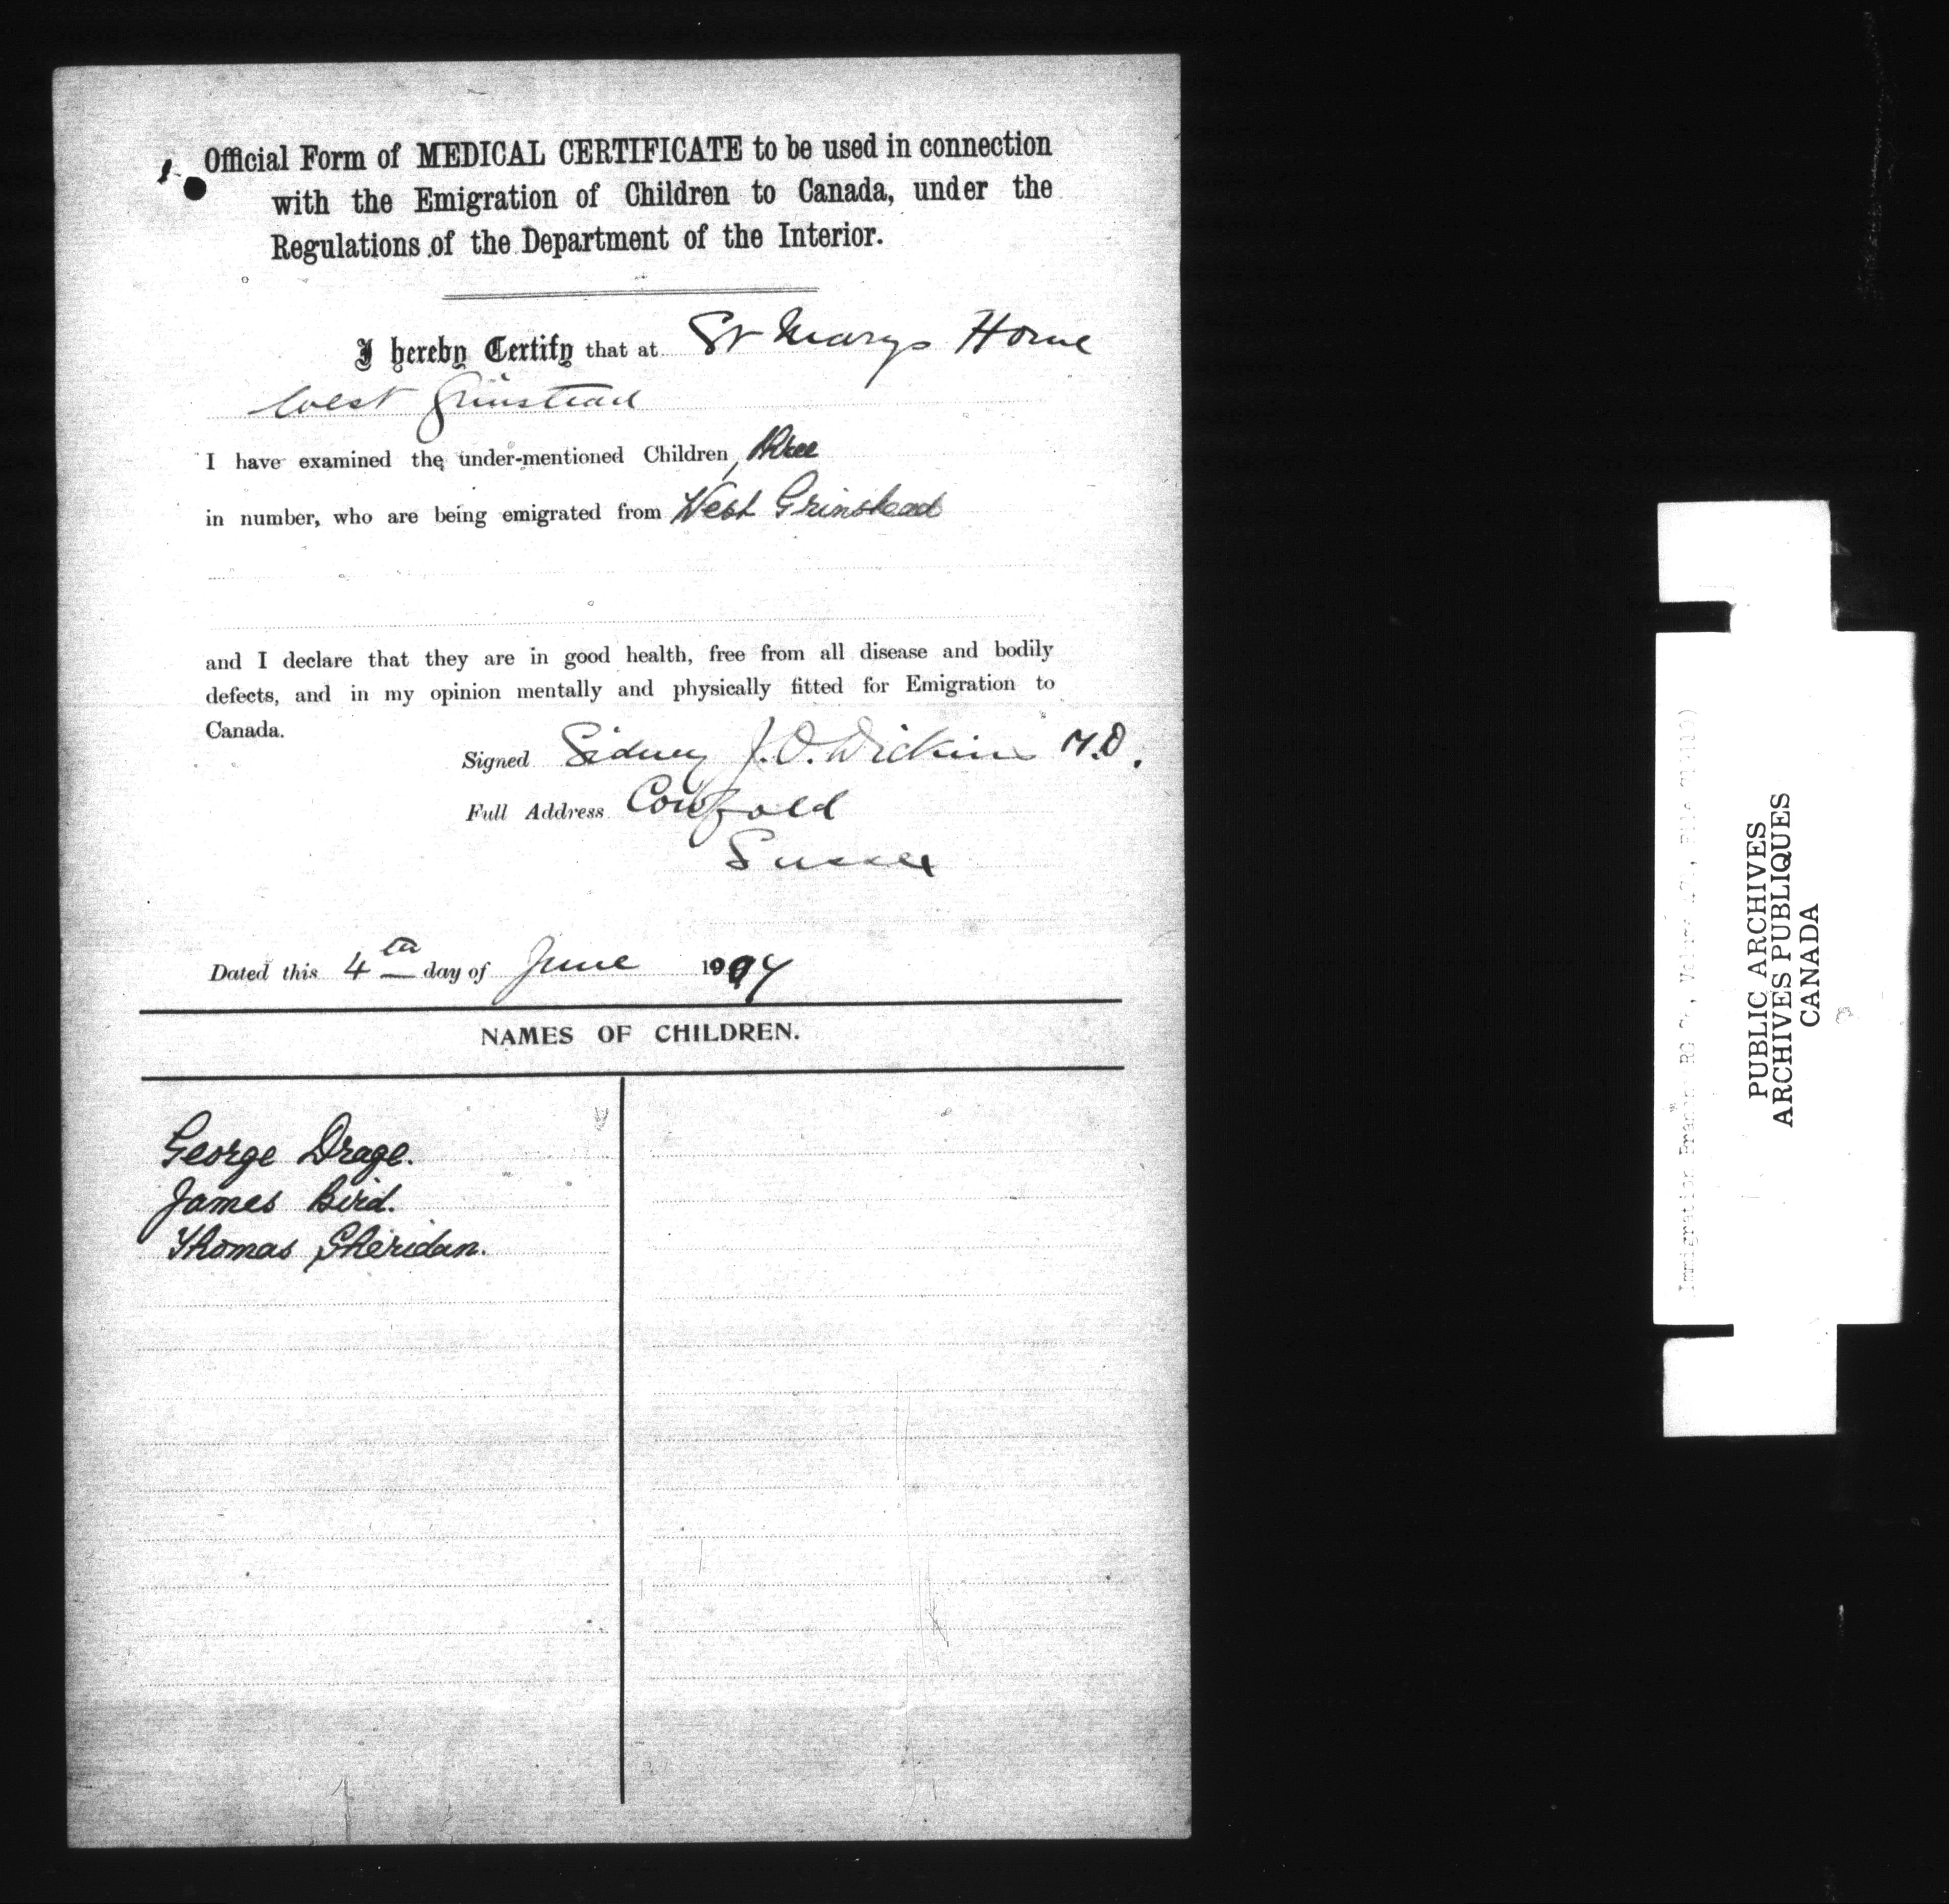 Official Form of MEDICAL CERTIFICATE to be used in connection
with the Emigration of Children to Canada, under the
Regulations of the Department of the Interior.
I hereby Certify that at St Marys Home
West Grinstead
I have examined the under-mentioned Children, three
in number, who are being emigrated from West Grinstead
and I declare that they are in good health, free from all disease and bodily
defects, and in my opinion mentally and physically fitted for Emigration to
Canada.
Signed Sidney J. O. Dickins M.D.
Full Address Cowfold
Sussex
Dated this 4th day of June
NAMES OF CHILDREN.
George Drage.
James Bird.
Thomas Sheridan.
PUBLIC ARCHIVES
ARCHIVES PUBLIQUES
CANADA
Immigration Branch, RG